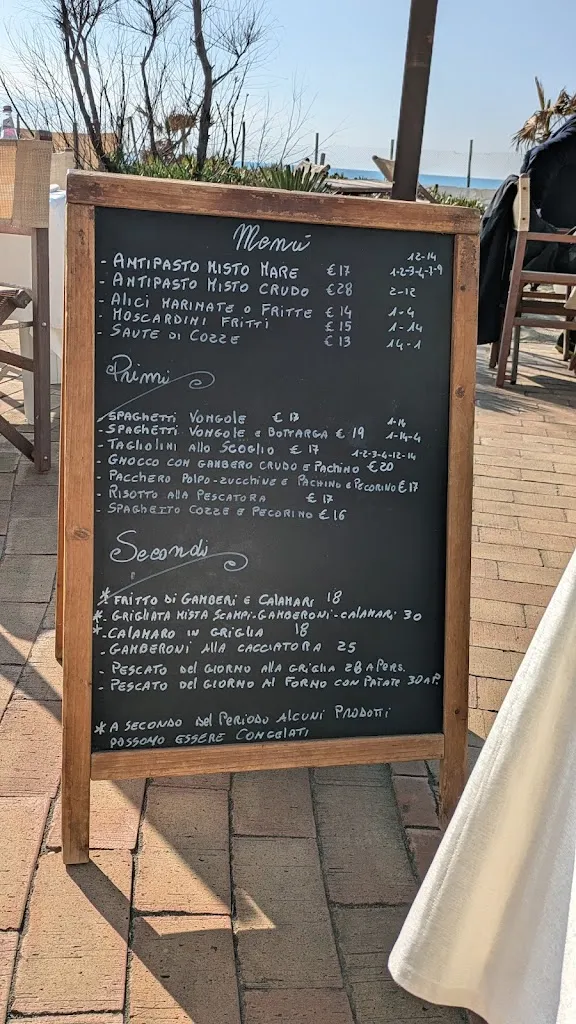 Menú
12-14
- ANTIPASTO MISTO MARE €17 1-2-3-4-7-9
- ANTIPASTO MISTO CRUDO €28 2-12
- ALICI MARINATE O FRITTE €14 1-4
- MOSCARDINI FRITTI €15 1-14
- SAUTE DI COZZE €13 14-1
Primi
- SPAGHETTI VONGOLE €17 1-14
- SPAGHETTI VONGOLE e BOTTARGA €19 1-14-4
- TAGLIOLINI ALLO SCOGLIO €17 1-2-3-4-12-14
- GNOCCO CON GAMBERO CRUDO e PACHINO €20
- PACCHERO POLPO-ZUCCHINE e PACHINO e PECORINO €17
- RISOTTO ALLA PESCATORA €17
- SPAGHETTO COZZE e PECORINO €16
Secondi
* FRITTO DI GAMBERI E CALAMARI 18
*- GRIGLIATA MISTA SCAMPI-GAMBERONI-CALAMARI 30
*- CALAMARO IN GRIGLIA 18
- GAMBERONI ALLA CACCIATORA 25
- PESCATO DEL GIORNO ALLA GRIGLIA 28 A PERS.
- PESCATO DEL GIORNO AL FORNO CON PATATE 30 A P.
* A SECONDO DEL PERIODO ALCUNI PRODOTTI
POSSONO ESSERE CONGELATI